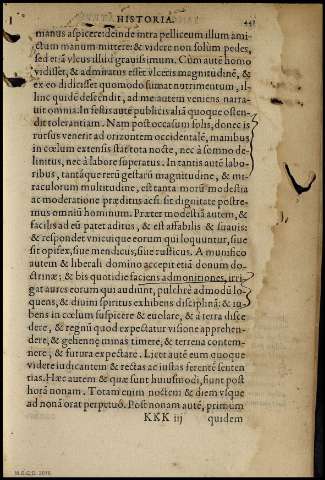 HISTORIA. 441
manus aspicere: deinde intra pelliceum illum ami-
ctum manum mittere: & videre non solùm pedes,
sed etiā vlcus illud grauissimum. Cùm autē homo
vidisset, & admiratus esset vlceris magnitudinē, &
ex eo didicisset quomodo sumat nutrimentum, il-
linc quidē descendit, ad me autem veniens narra-
uit omnia. In festis autē publicis aliā quoque osten-
dit tolerantiam. Nam post occasum solis, donec is
rursus venerit ad orizontem occidentalē, manibus
in cœlum extensis stat tota nocte, nec à somno de-
linitus, nec à labore superatus. In tantis autē labo-
ribus, tantáque rerū gestarū magnitudine, & mi-
raculorum multitudine, est tanta morū modestia
ac moderatione præditus acsi sit dignitate postre-
mus omniū hominum. Præter modestiā autem, &
facilis ad eū patet aditus, & est affabilis & suauis:
& respondet vnicuique eorum qui loquuntur, siue
sit opifex, siue mendicus, siue rusticus. A munifico
autem & liberali domino accepit etiā donum do-
ctrinæ; & bis quotidie faciens admonitiones, irri-
gat aures eorum qui audiunt, pulchrè admodū lo-
quens, & diuini spiritus exhibens disciplinā: & iu-
bens in cœlum suspicere & euolare, & à terra disce
dere, & regnū quod expectatur visione apprehen-
dere, & gehennę minas timere, & terrena contem-
nere, & futura expectare. Licet autē eum quoque
videre iudicantem & rectas ac iustas ferentē senten
tias. Hæc autem & quæ sunt huiusmodi, fiunt post
horā nonam. Totam enim noctem & diem vsque
ad nonā orat perpetuò. Post nonam autē, primùm
KKK iij quidem